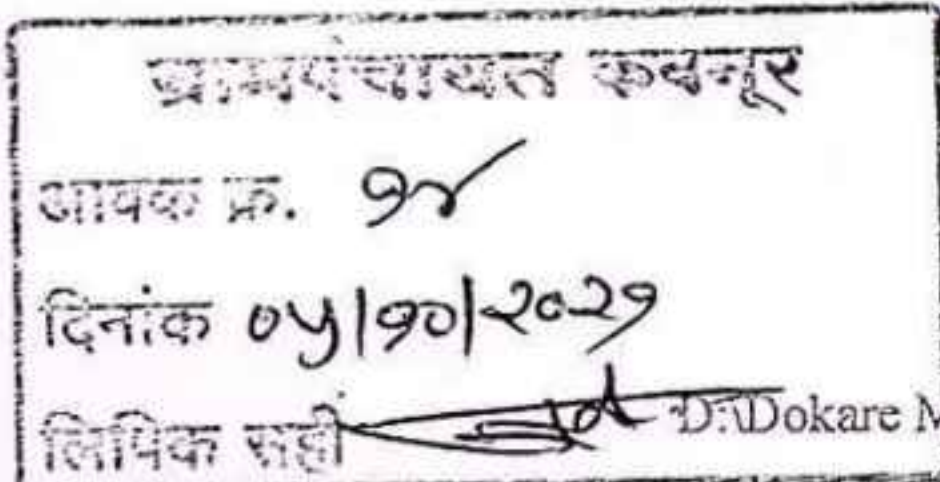 ग्रामपंचायत कबनूर
आवक क्र. १४
दिनांक ०५|१०|२०२१
लिपिक सही D:\Dokare M